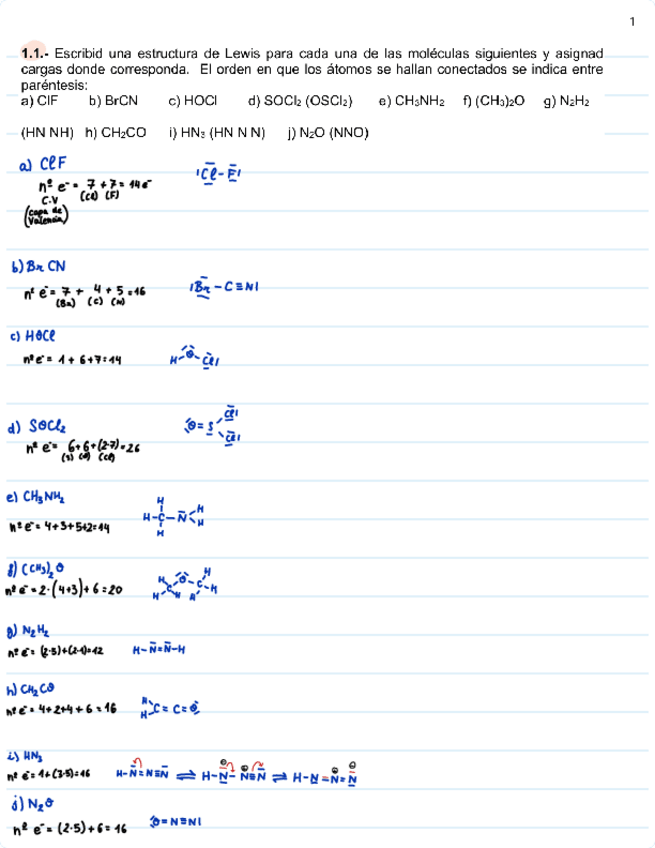 1
1.1.- Escribid una estructura de Lewis para cada una de las moléculas siguientes y asignad
cargas donde corresponda. El orden en que los átomos se hallan conectados se indica entre
paréntesis:
a) ClF b) BrCN c) HOCl d) SOCl₂ (OSCl₂) e) CH₃NH₂ f) (CH₃)₂O g) N₂H₂
(HN NH) h) CH₂CO i) HN₃ (HN N N) j) N₂O (NNO)
a) ClF
nº e⁻ = 7 + 7 = 14e⁻
C.V (Cl) (F)
(capa de
Valencia)
|Cl - F|
b) Br CN
nº e⁻ = 7 + 4 + 5 = 16
(Br) (C) (N)
|Br - C ≡ N|
c) HOCl
nº e⁻ = 1 + 6 + 7 = 14
H - O - Cl|
d) SOCl₂
nº e⁻ = 6 + 6 + (2·7) = 26
(S) (O) (Cl)
O = S
Cl|
Cl|
e) CH₃NH₂
nº e⁻ = 4 + 3 + 5 + 2 = 14
H
H - C - N
H
H
H
f) (CH₃)₂O
nº e⁻ = 2·(4+3) + 6 = 20
H O H
H C C - H
H H
g) N₂H₂
nº e⁻ = (2·5) + (2·1) = 12
H - N = N - H
h) CH₂CO
nº e⁻ = 4 + 2 + 4 + 6 = 16
H
H C = C = O
i) HN₃
nº e⁻ = 1 + (3·5) = 16
H - N = N ≡ N ⇌ H - N - N ≡ N ⇌ H - N = N = N
j) N₂O
nº e⁻ = (2·5) + 6 = 16
O = N ≡ N|